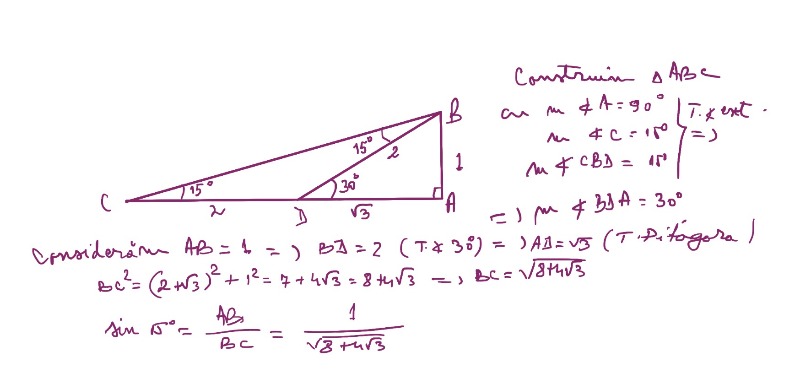 Construim △ ABC
cu m ∢ A = 90°
m ∢ C = 15°
m ∢ CBD = 15°
T. ∢ ext.
=>
=> m ∢ BDA = 30°
B
15°
2
1
C
15°
30°
A
2
D
√3
Considerăm AB = 1 => BD = 2 (T. ∢ 30°) => AD = √3 (T. Pitágora)
BC² = (2+√3)² + 1² = 7 + 4√3 = 8+4√3 => BC = √8+4√3
sin 15° = AB/BC = 1/√8+4√3